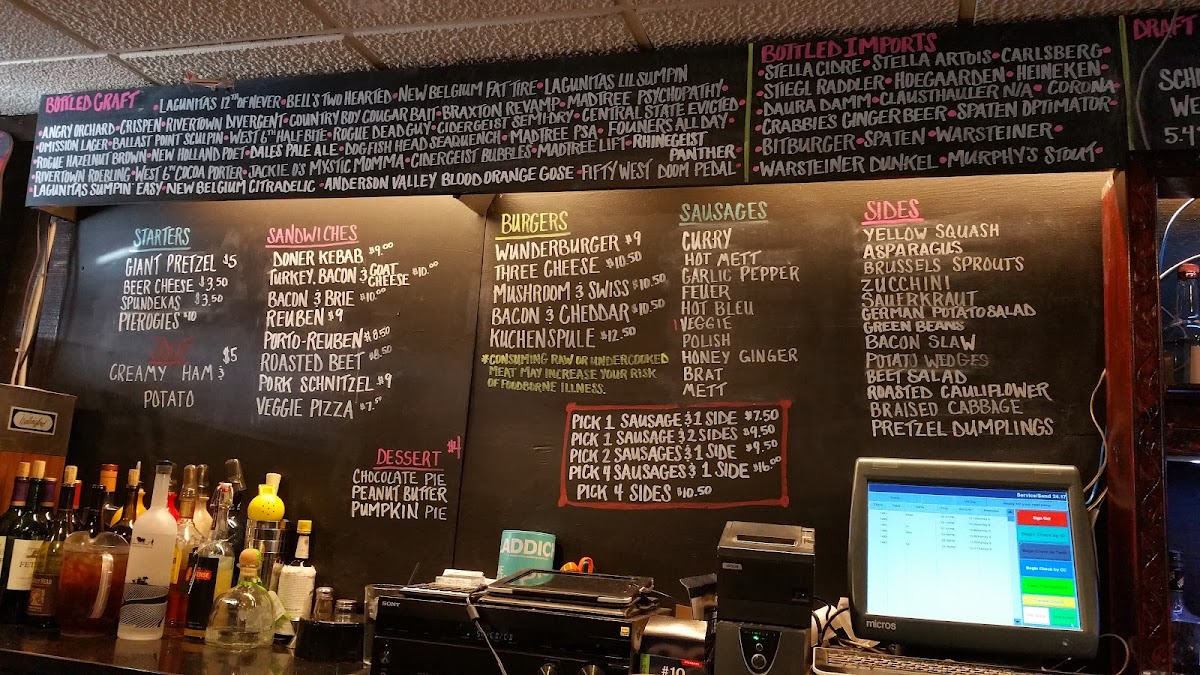 BOTTLED CRAFT • LAGUNITAS 12TH OF NEVER • BELL'S TWO HEARTED • NEW BELGIUM FAT TIRE • LAGUNITAS LIL SUMPIN
• ANGRY ORCHARD • CRISPEN • RIVERTOWN DIVERGENT • COUNTRY BOY COUGAR BAIT • BRAXTON REVAMP • MADTREE PSYCHOPATHY •
• OMISSION LAGER • BALLAST POINT SCULPIN • WEST 6TH HALF BITE • ROGUE DEAD GUY • CIDERGEIST SEMI-DRY • CENTRAL STATE EVICTED •
• ROGUE HAZELNUT BROWN • NEW HOLLAND POET • DALES PALE ALE • DOGFISH HEAD SEAQUENCH • MADTREE PSA • FOUNERS ALL DAY •
• RIVERTOWN ROEBLING • WEST 6TH COCOA PORTER • JACKIE O'S MYSTIC MOMMA • CIDERGEIST BUBBLES • MADTREE LIFT • RHINEGEIST PANTHER •
• LAGUNITAS SUMPIN' EASY • NEW BELGIUM CITRADELIC • ANDERSON VALLEY BLOOD ORANGE GOSE • FIFTY WEST DOOM PEDAL •
BOTTLED IMPORTS
• STELLA CIDRE • STELLA ARTOIS • CARLSBERG •
• STIEGL RADDLER • HOEGAARDEN • HEINEKEN •
• DAURA DAMM • CLAUSTHALLER N/A • CORONA •
• CRABBIES GINGER BEER • SPATEN OPTIMATOR •
• BITBURGER • SPATEN • WARSTEINER •
• WARSTEINER DUNKEL • MURPHY'S STOUT •
DRAFT
STARTERS
GIANT PRETZEL $5
BEER CHEESE $3.50
SPUNDEKAS $3.50
PIEROGIES $10
SOUP
CREAMY HAM & $5
POTATO
SANDWICHES
DONER KEBAB $9.00
TURKEY, BACON & GOAT CHEESE $10.00
BACON & BRIE $10.00
REUBEN $9
PORTO-REUBEN $8.50
ROASTED BEET $8.50
PORK SCHNITZEL $9
VEGGIE PIZZA $7.50
DESSERT $4
CHOCOLATE PIE
PEANUT BUTTER
PUMPKIN PIE
BURGERS
WUNDERBURGER $9
THREE CHEESE $10.50
MUSHROOM & SWISS $10.50
BACON & CHEDDAR $10.50
KUCHENSPULE $12.50
*CONSUMING RAW OR UNDERCOOKED
MEAT MAY INCREASE YOUR RISK
OF FOODBORNE ILLNESS.
SAUSAGES
CURRY
HOT METT
GARLIC PEPPER
FEUER
HOT BLEU
VEGGIE
POLISH
HONEY GINGER
BRAT
METT
PICK 1 SAUSAGE & 1 SIDE $7.50
PICK 1 SAUSAGE & 2 SIDES $9.50
PICK 2 SAUSAGES & 1 SIDE $9.50
PICK 4 SAUSAGES & 1 SIDE $16.00
PICK 4 SIDES $10.50
SIDES
YELLOW SQUASH
ASPARAGUS
BRUSSELS SPROUTS
ZUCCHINI
SAUERKRAUT
GERMAN POTATO SALAD
GREEN BEANS
BACON SLAW
POTATO WEDGES
BEET SALAD
ROASTED CAULIFLOWER
BRAISED CABBAGE
PRETZEL DUMPLINGS
ADDIC
SONY
EPSON
#10
micros